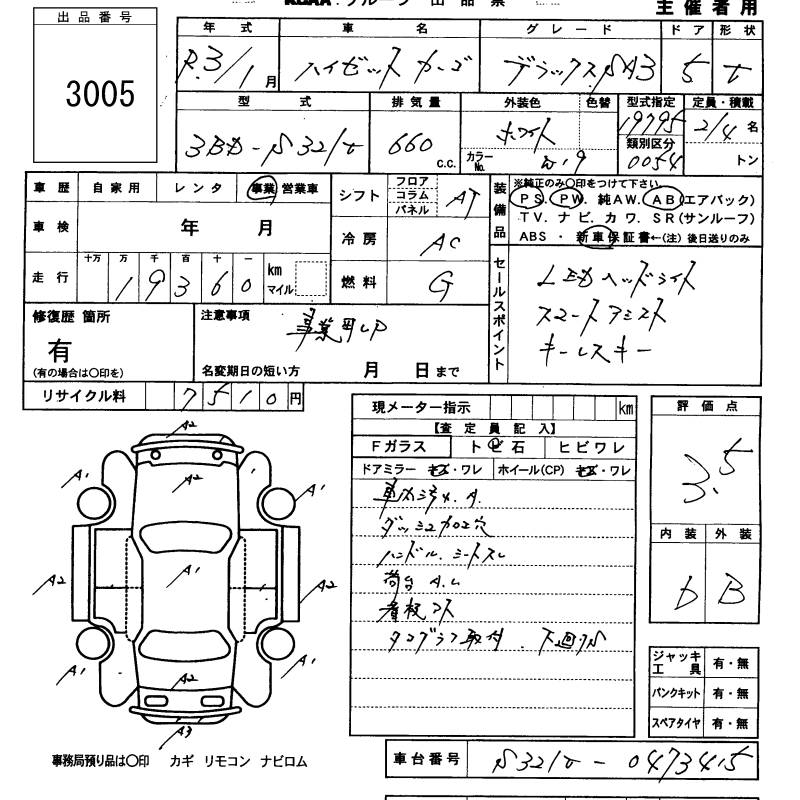 出品番号
3005
主催者用
年式 車名 グレード ドア 形状
R.3/1月 ハイゼット カーゴ デラックスSA3 5 V
型式 排気量 外装色 色替 型式指定 定員・積載
3BD-S321V 660 c.c. ホワイト カラーNo. W19 19795 2/4名
類別区分 0054 トン
車歴 自家用 レンタ 事業 営業車
シフト フロア コラム パネル AT
装備品 ※純正のみ〇印をつけて下さい
PS. PW. 純AW. AB(エアバック)
TV. ナビ. カワ. SR(サンルーフ)
ABS ・ 新車保証書←(注) 後日送りのみ
車検 年 月
冷房 AC
走行 十万 万 千 百 十 一
19360 km マイル
燃料 G
セールスポイント
LEDヘッドライト
スマートアシスト
キーレスキー
修復歴 箇所
有
(有の場合は〇印を)
注意事項
事業用UP
名変期日の短い方 月 日まで
リサイクル料 7510円
現メーター指示 km
【査定員記入】
Fガラス トビ石 ヒビワレ
ドアミラー キズ・ワレ ホイール(CP) キズ・ワレ
車内ヨゴレ.A.
ダッシュ加工穴
ハンドル.シートスレ
荷台 A.U
看板コス
タコグラフ取付. 下廻りS
評価点
3.5
内装 外装
D B
A2
A1 A2 A1
A2 A1 A2
A1 A2 A1
A3
ジャッキ工具 有・無
パンクキット 有・無
スペアタイヤ 有・無
事務局預り品は〇印 カギ リモコン ナビロム
車台番号 S321V-0473415